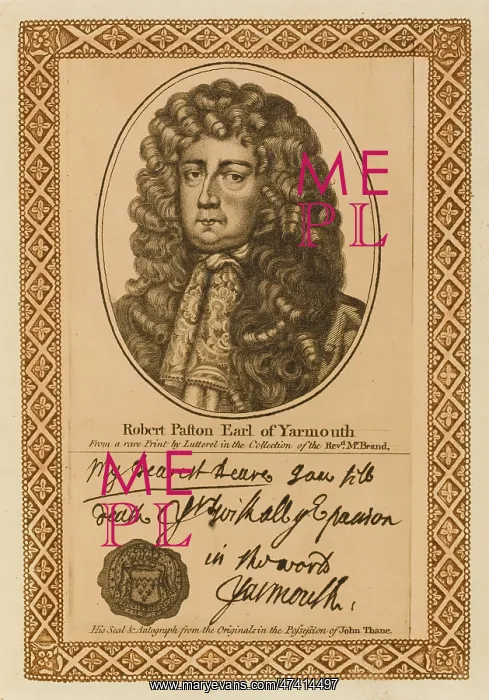 ME
PL
Robert Paſton Earl of Yarmouth
From a rare Print by Lutterel in the Collection of the Revd. Mr. Brand.
My Dearest Deare I am till
death
ME
PL
in the world
Yarmouth.
His Seal & Autograph from the Originals in the Poſseſsion of John Thane.
www.maryevans.com/47414497